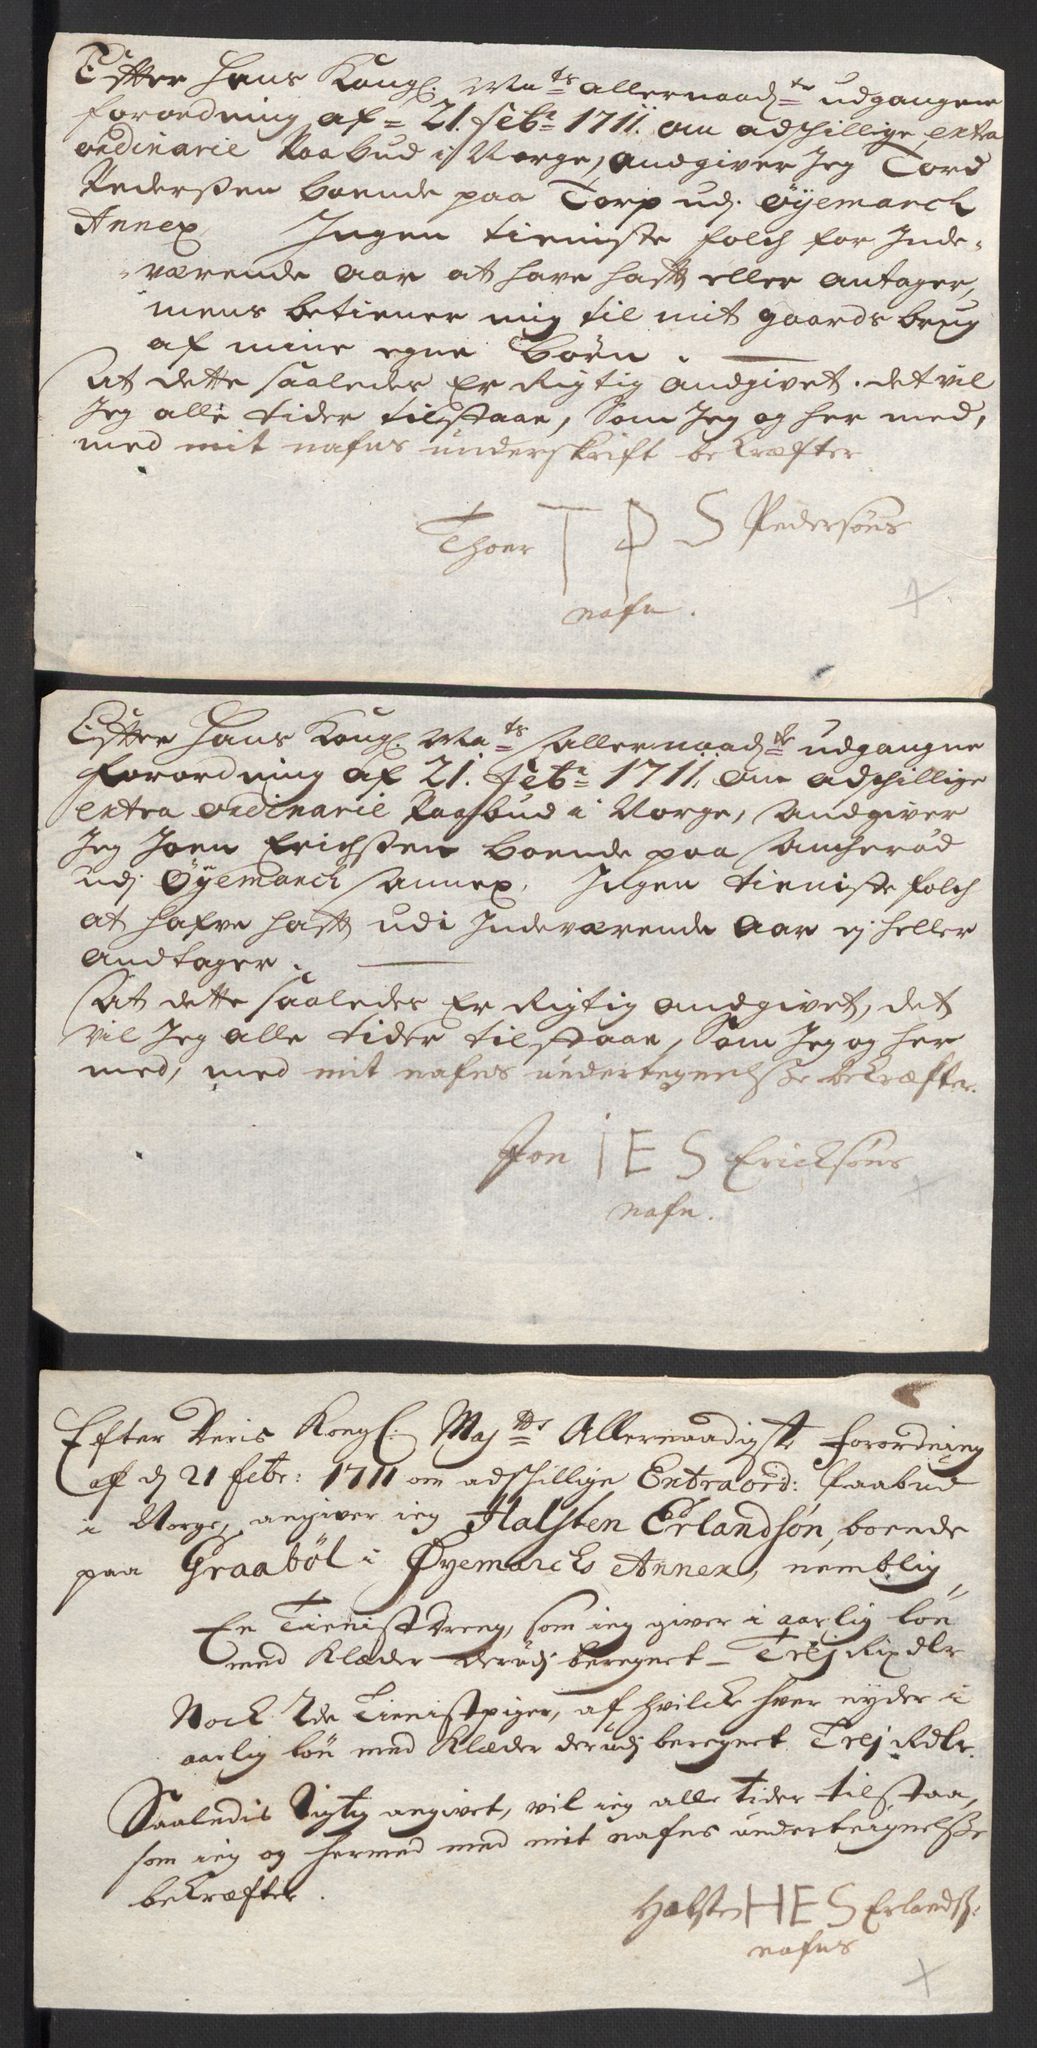 Efter Hans Kongl. Ma.ts allernaad.te udgangne
forordning af 21. Febr. 1711. om adskillige extra
ordinarie Paabud i Norge, andgiver Jeg Tord
Pederßen boende paa Torp udj Øyemarck
Annex Ingen tieniste folch for Inde-
værende Aar at have hafft eller antager,
mens betiener mig til mit gaards brug
af mine egne Børn.
At dette saaledes Er Rigtig andgivet. det vil
Jeg alle tider tilstaae, Som Jeg og her med,
med mit nafns underskrift bekræfter
Thoer T P S Pedersøns
nafn.
Efter Hans Kongl. Ma.ts Allernaad.te udgangne
forordning af 21. Febr. 1711. om adskillige
extra ordinarie Paabud i Norge, Andgiver
Jeg Joen Erichßen boende paa
udj Øyemarck Annex, Ingen tieniste folch
at hafve hafft udi Indeværende Aar ej heller
Andtager.
At dette saaledes Er Rigtig andgivet, det
vil Jeg alle tider tilstaae, Som Jeg og her
med, med mit nafns undertegnelße bekræfter.
Jon I E S Ericksøns
nafn.
Efter Deris Kongl: Maj.tts Allernaadigste forordning
af d 21 febr: 1711 om adskillige Extraord: Paabud
i Norge, angiver ieg Halsten Erlandsøn, boende
paa Graabøl i Øyemarcks Annex, nemblig
En Tienistdreng, som ieg giver i aarlig løn
med Klæder derudj beregnet - Trej Rixdlr
Nock 2de Tienistpiger, af hvilcke hver nyder i
aarlig løn med Klæder derudj beregnet Trej Rdlr.
Saaledis Rigtig angivet, vil ieg alle tider tilstaa,
som ieg og hermed med mit nafns underteignelße
bekræfter.
Halsten H E S Erlandß:
nafns